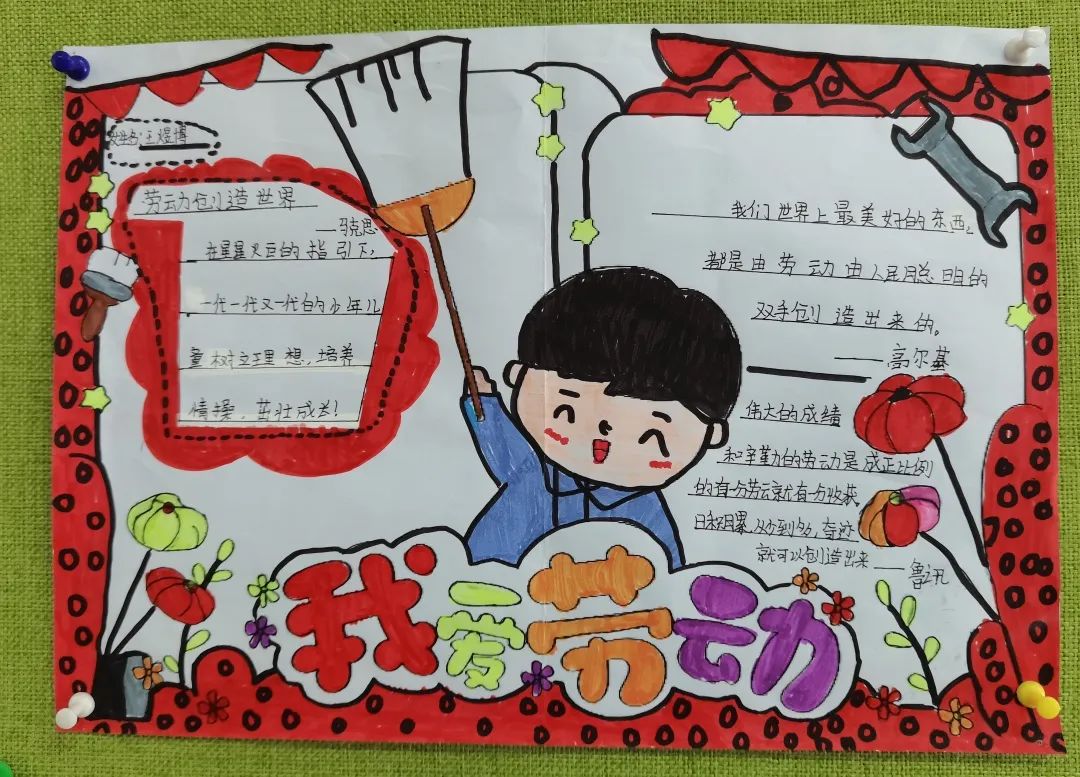 姓名:王煜博
劳动创造世界
——马克思
在星星火豆的指引下,
一代一代又一代的少年儿
童树立理想,培养
情操,茁壮成长!
我们世界上最美好的东西,
都是由劳动由人民聪明的
双手创造出来的。
——高尔基
伟大的成绩
和辛勤的劳动是成正比例
的有一分劳动就有一分收获,
日积月累,从少到多,奇迹
就可以创造出来——鲁迅
我爱劳动